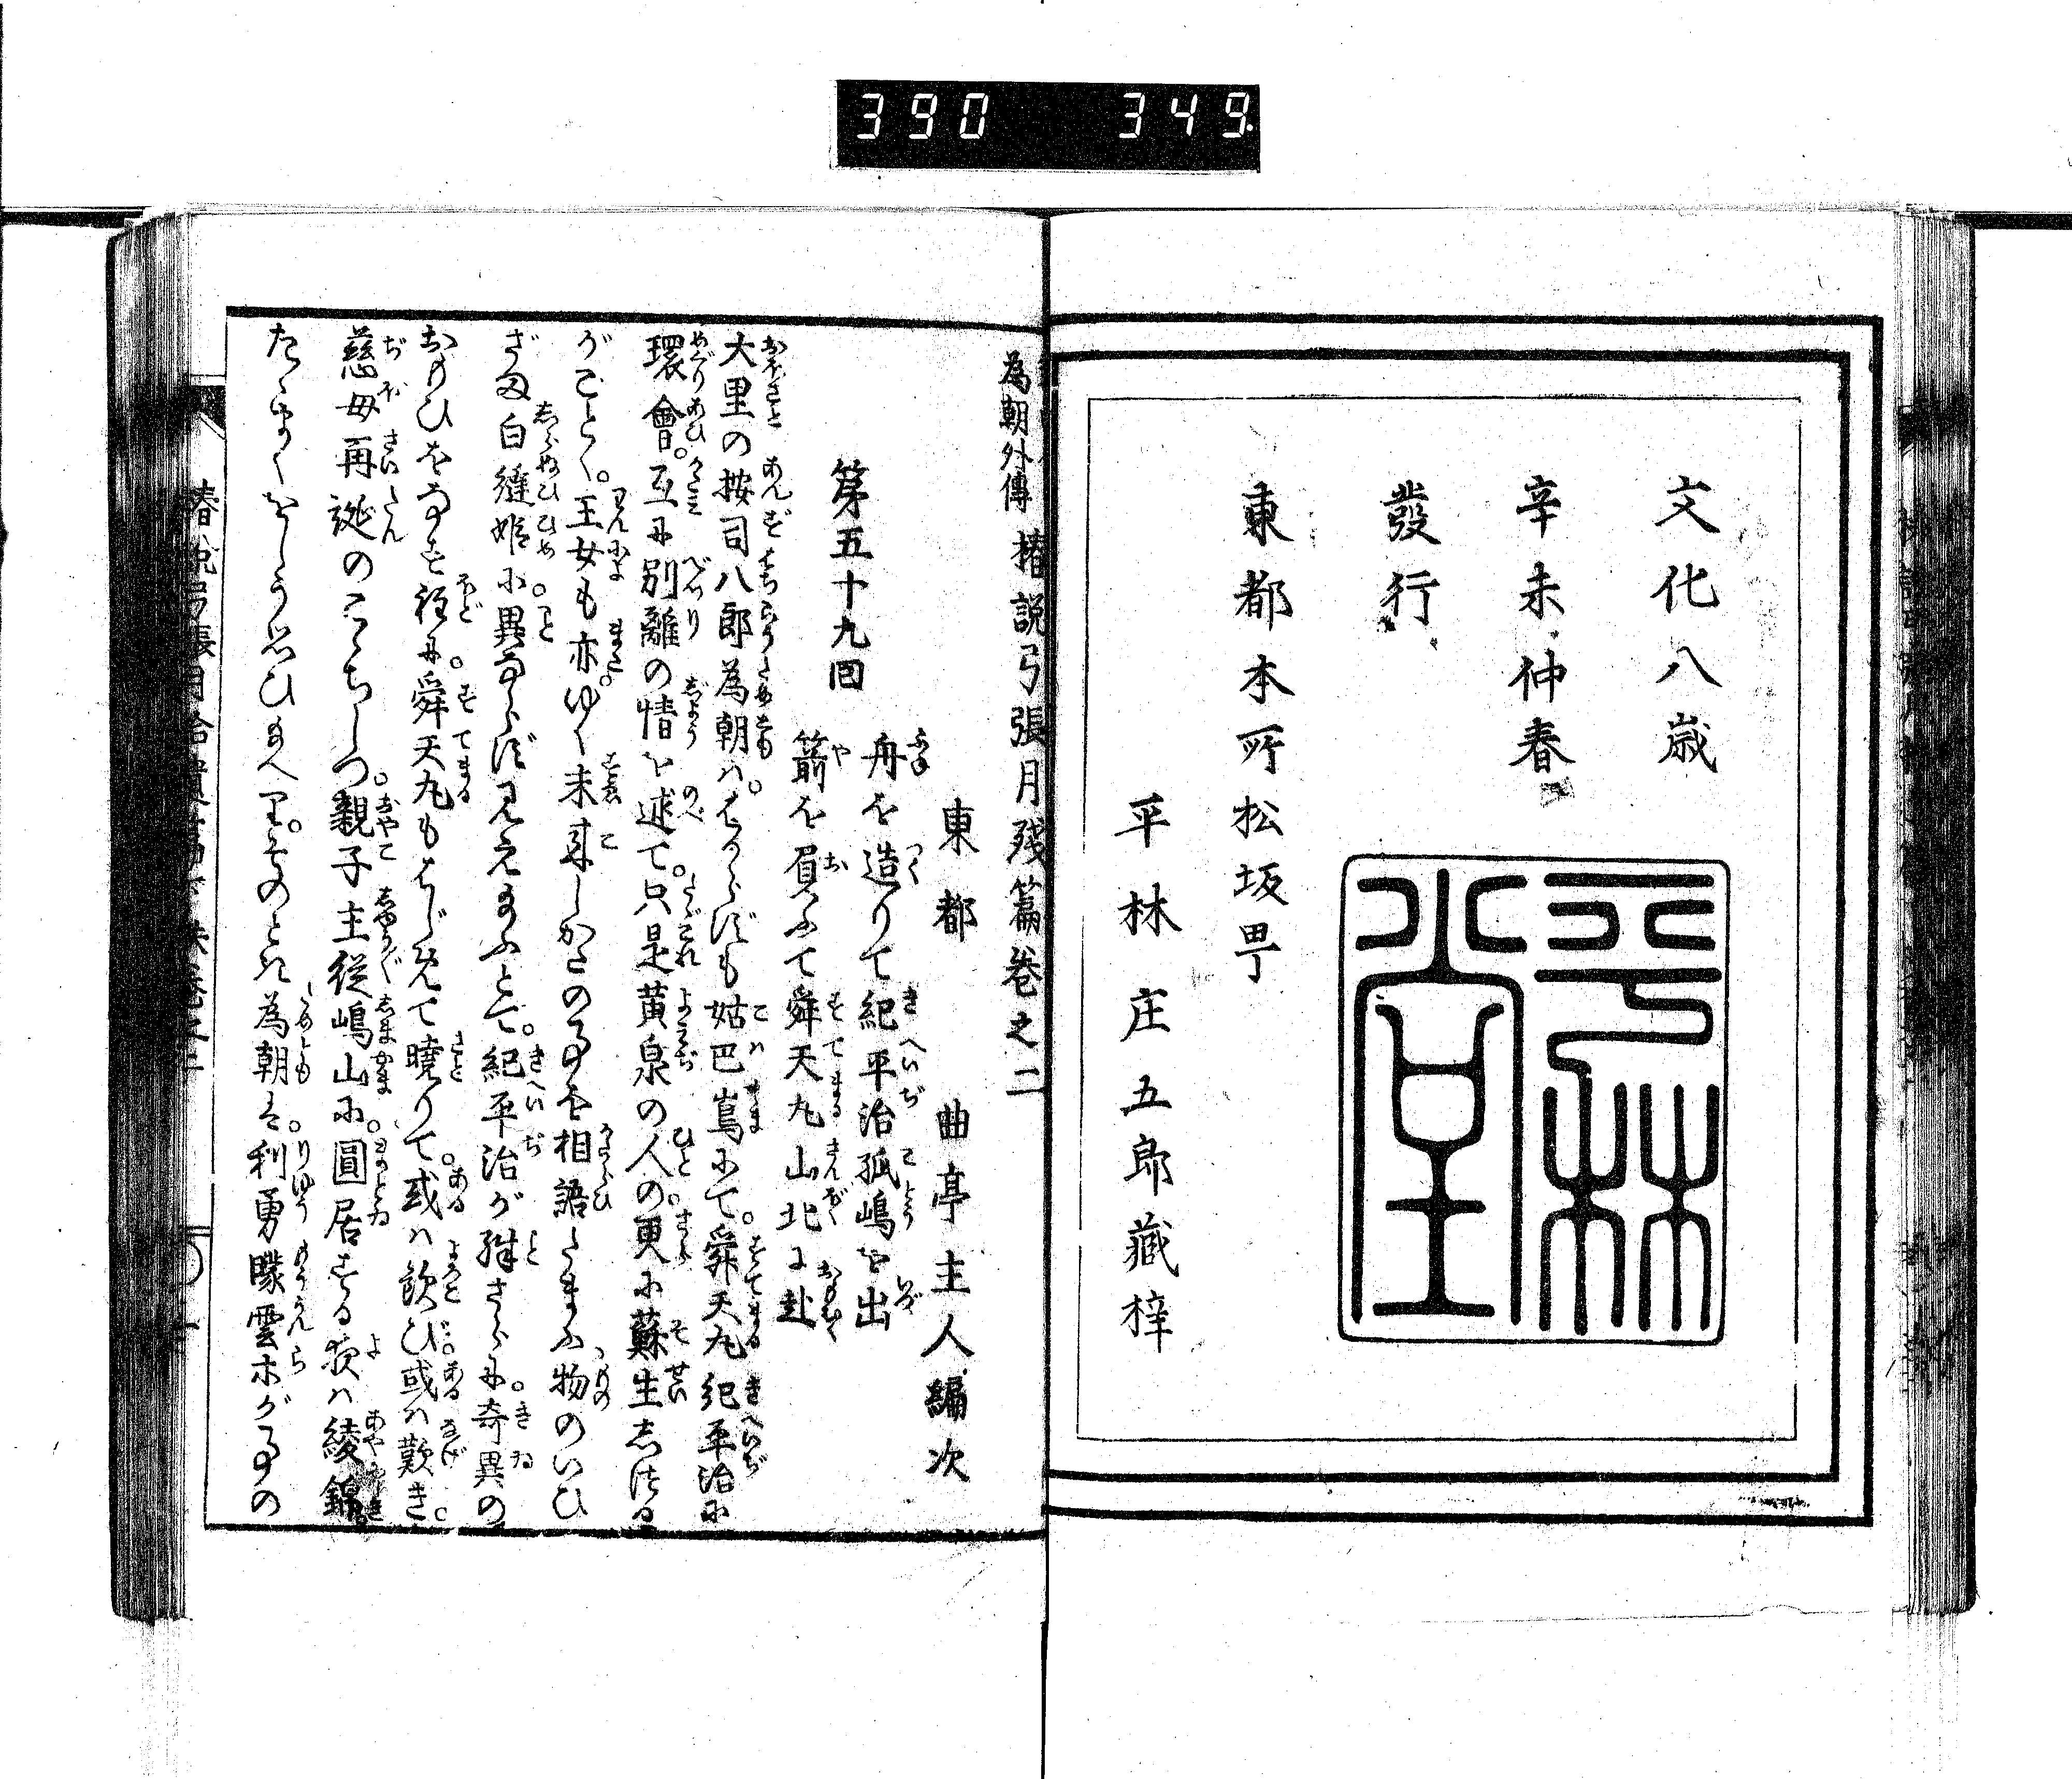 390 349
文化八歳
辛未仲春
發行
東都本所松坂町
平林庄五郎藏梓
平林堂
為朝外傳 椿説弓張月殘篇卷之二
東都 曲亭主人編次
第五十九回
舟を造りて紀平治孤嶋を出
箭を負ふて舜天丸山北に赴
大里の按司八郎為朝ハ。はからずも姑巴嶌にて。舜天丸紀平治に
環會。互に別離の情を述て。只是黄泉の人の。更に蘇生しつる
がごとく。王女も亦。ゆく末来しかたの事を相語たまふ物のいひ
ざま白縫姫に。異ならず見え給ふとて。紀平治が殊さらに。奇異の
おもひをなす程に。舜天丸もはじめて曉りて。或ハ歓び。或ハ歎き。
慈母再誕のこゝちしつ。親子主従嶋山に。圓居する夜ハ綾錦
たゝまくをしう思ひ給へり。そのとき為朝は。利勇曚雲等が事の